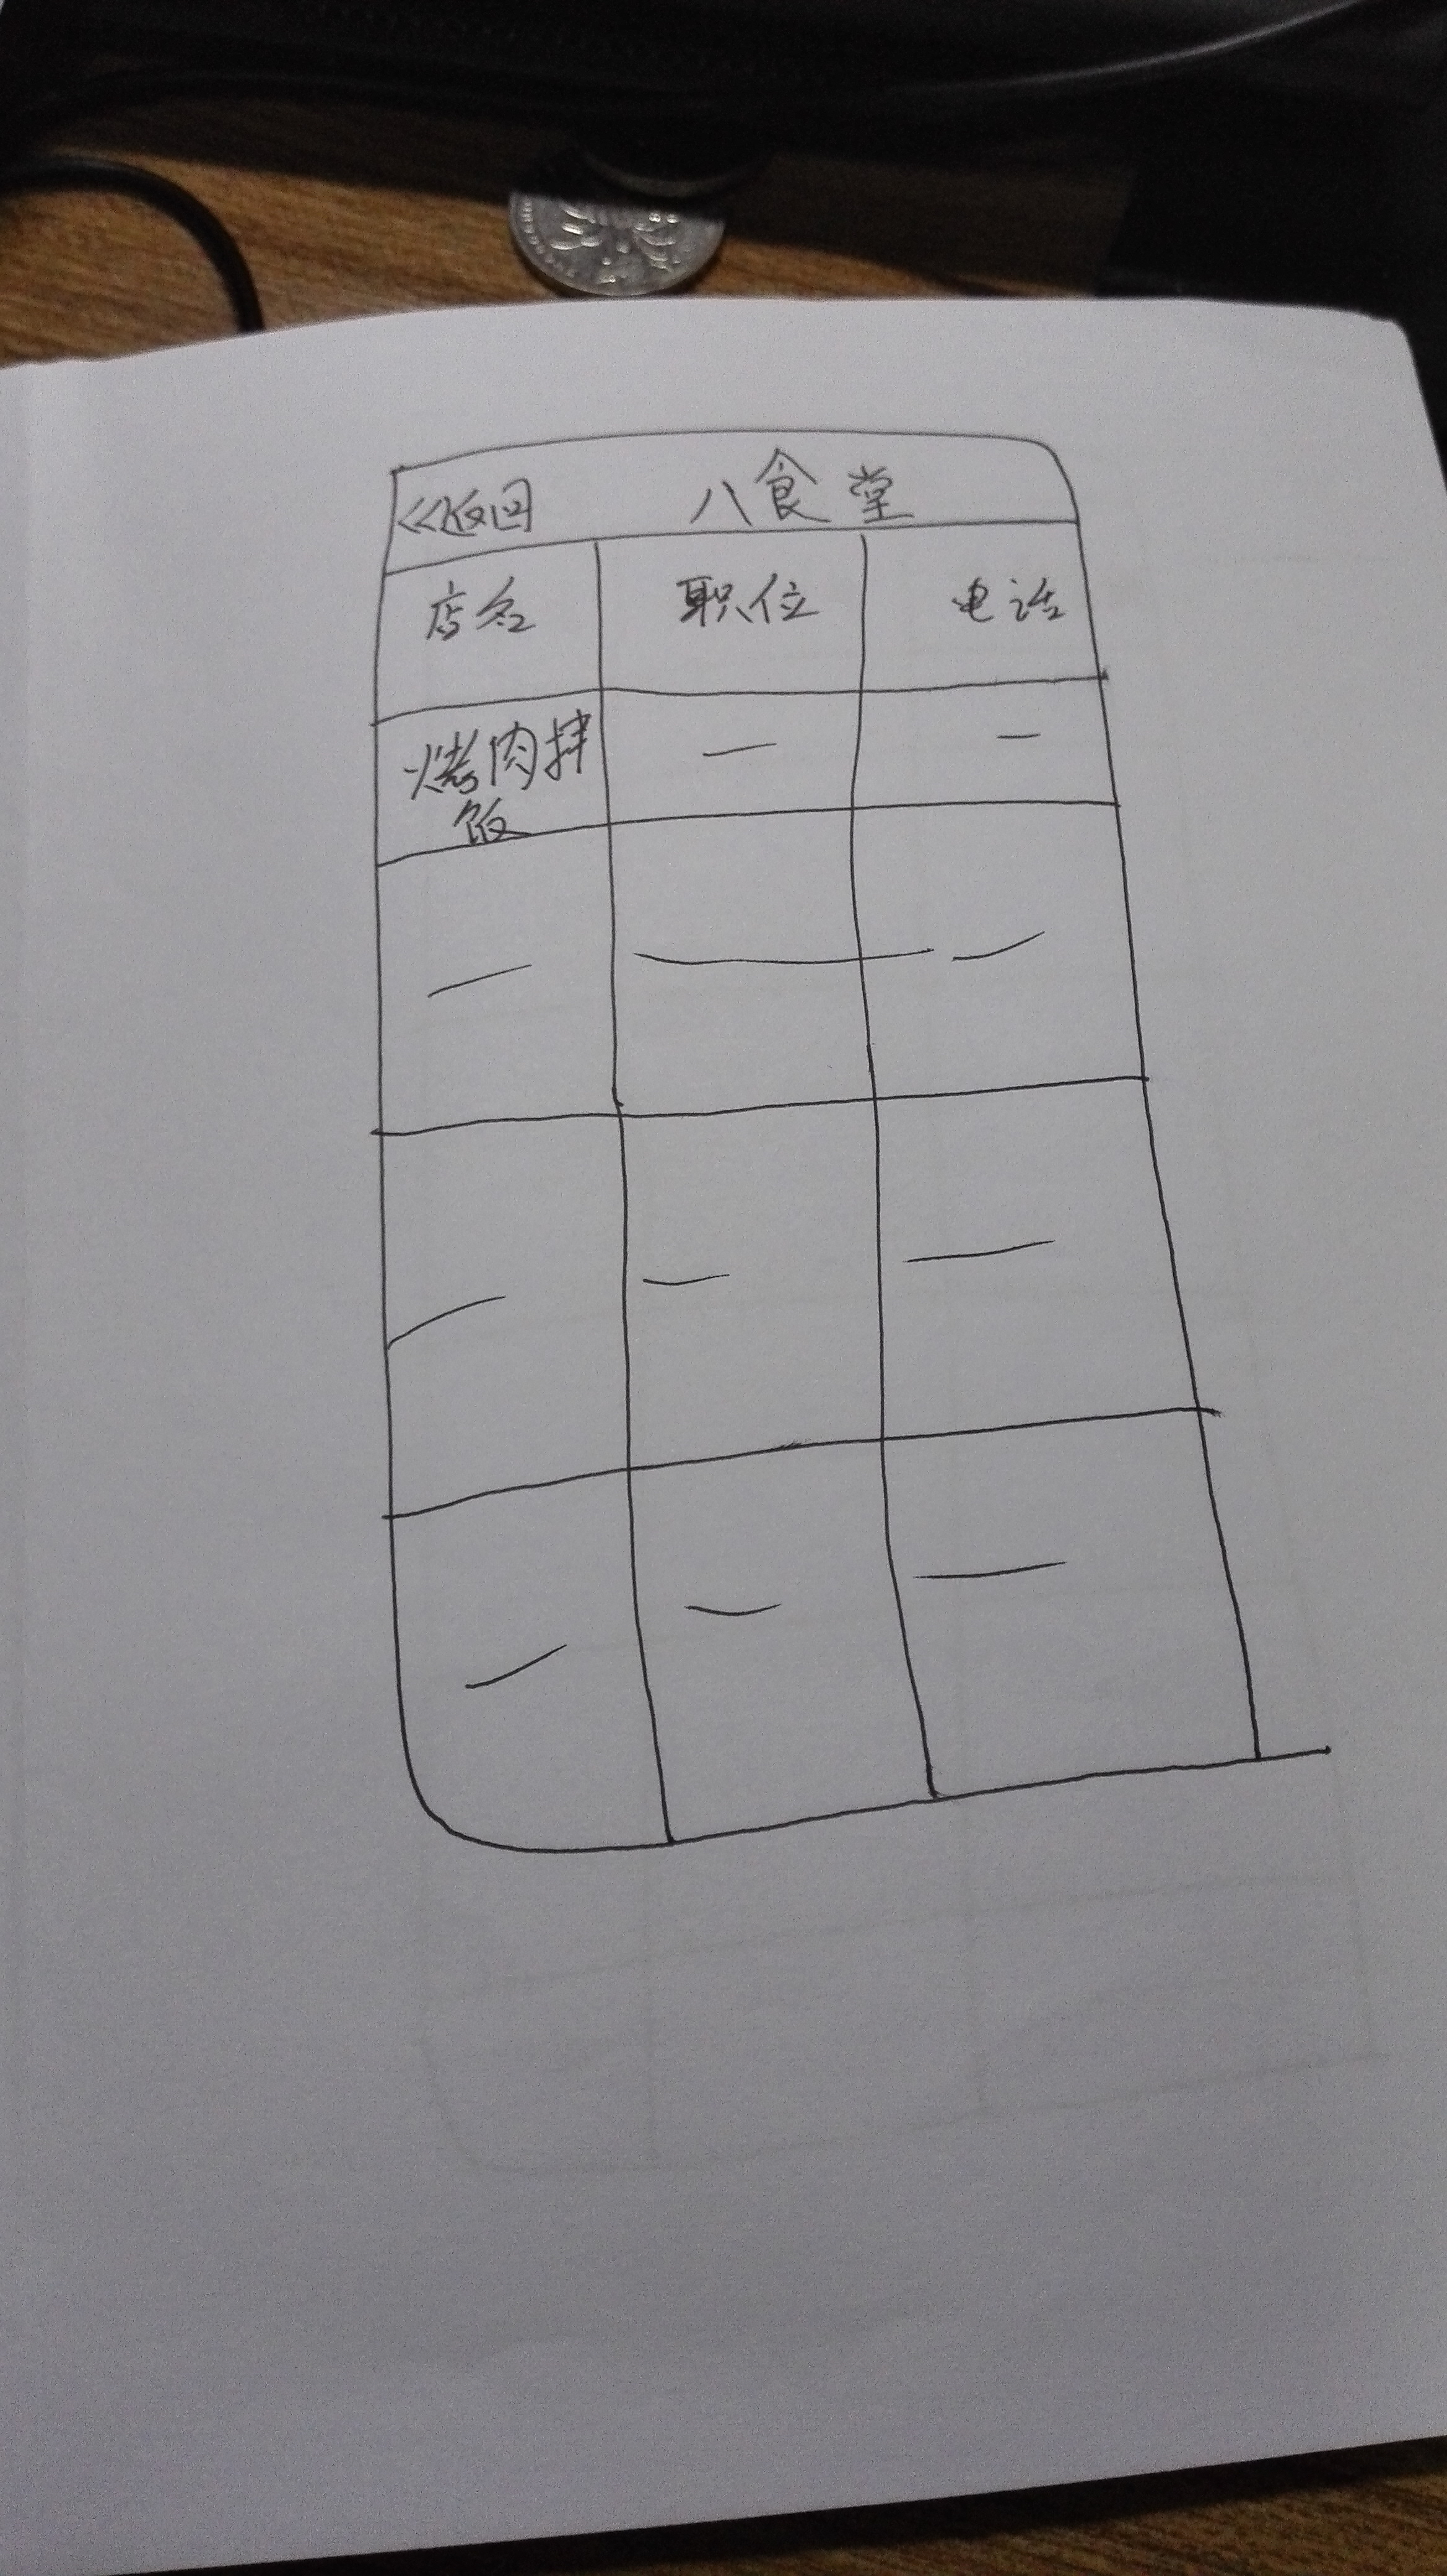 <<返回 八食堂
店名 职位 电话
烤肉拌 — —
饭
— — —
— — —
— — —